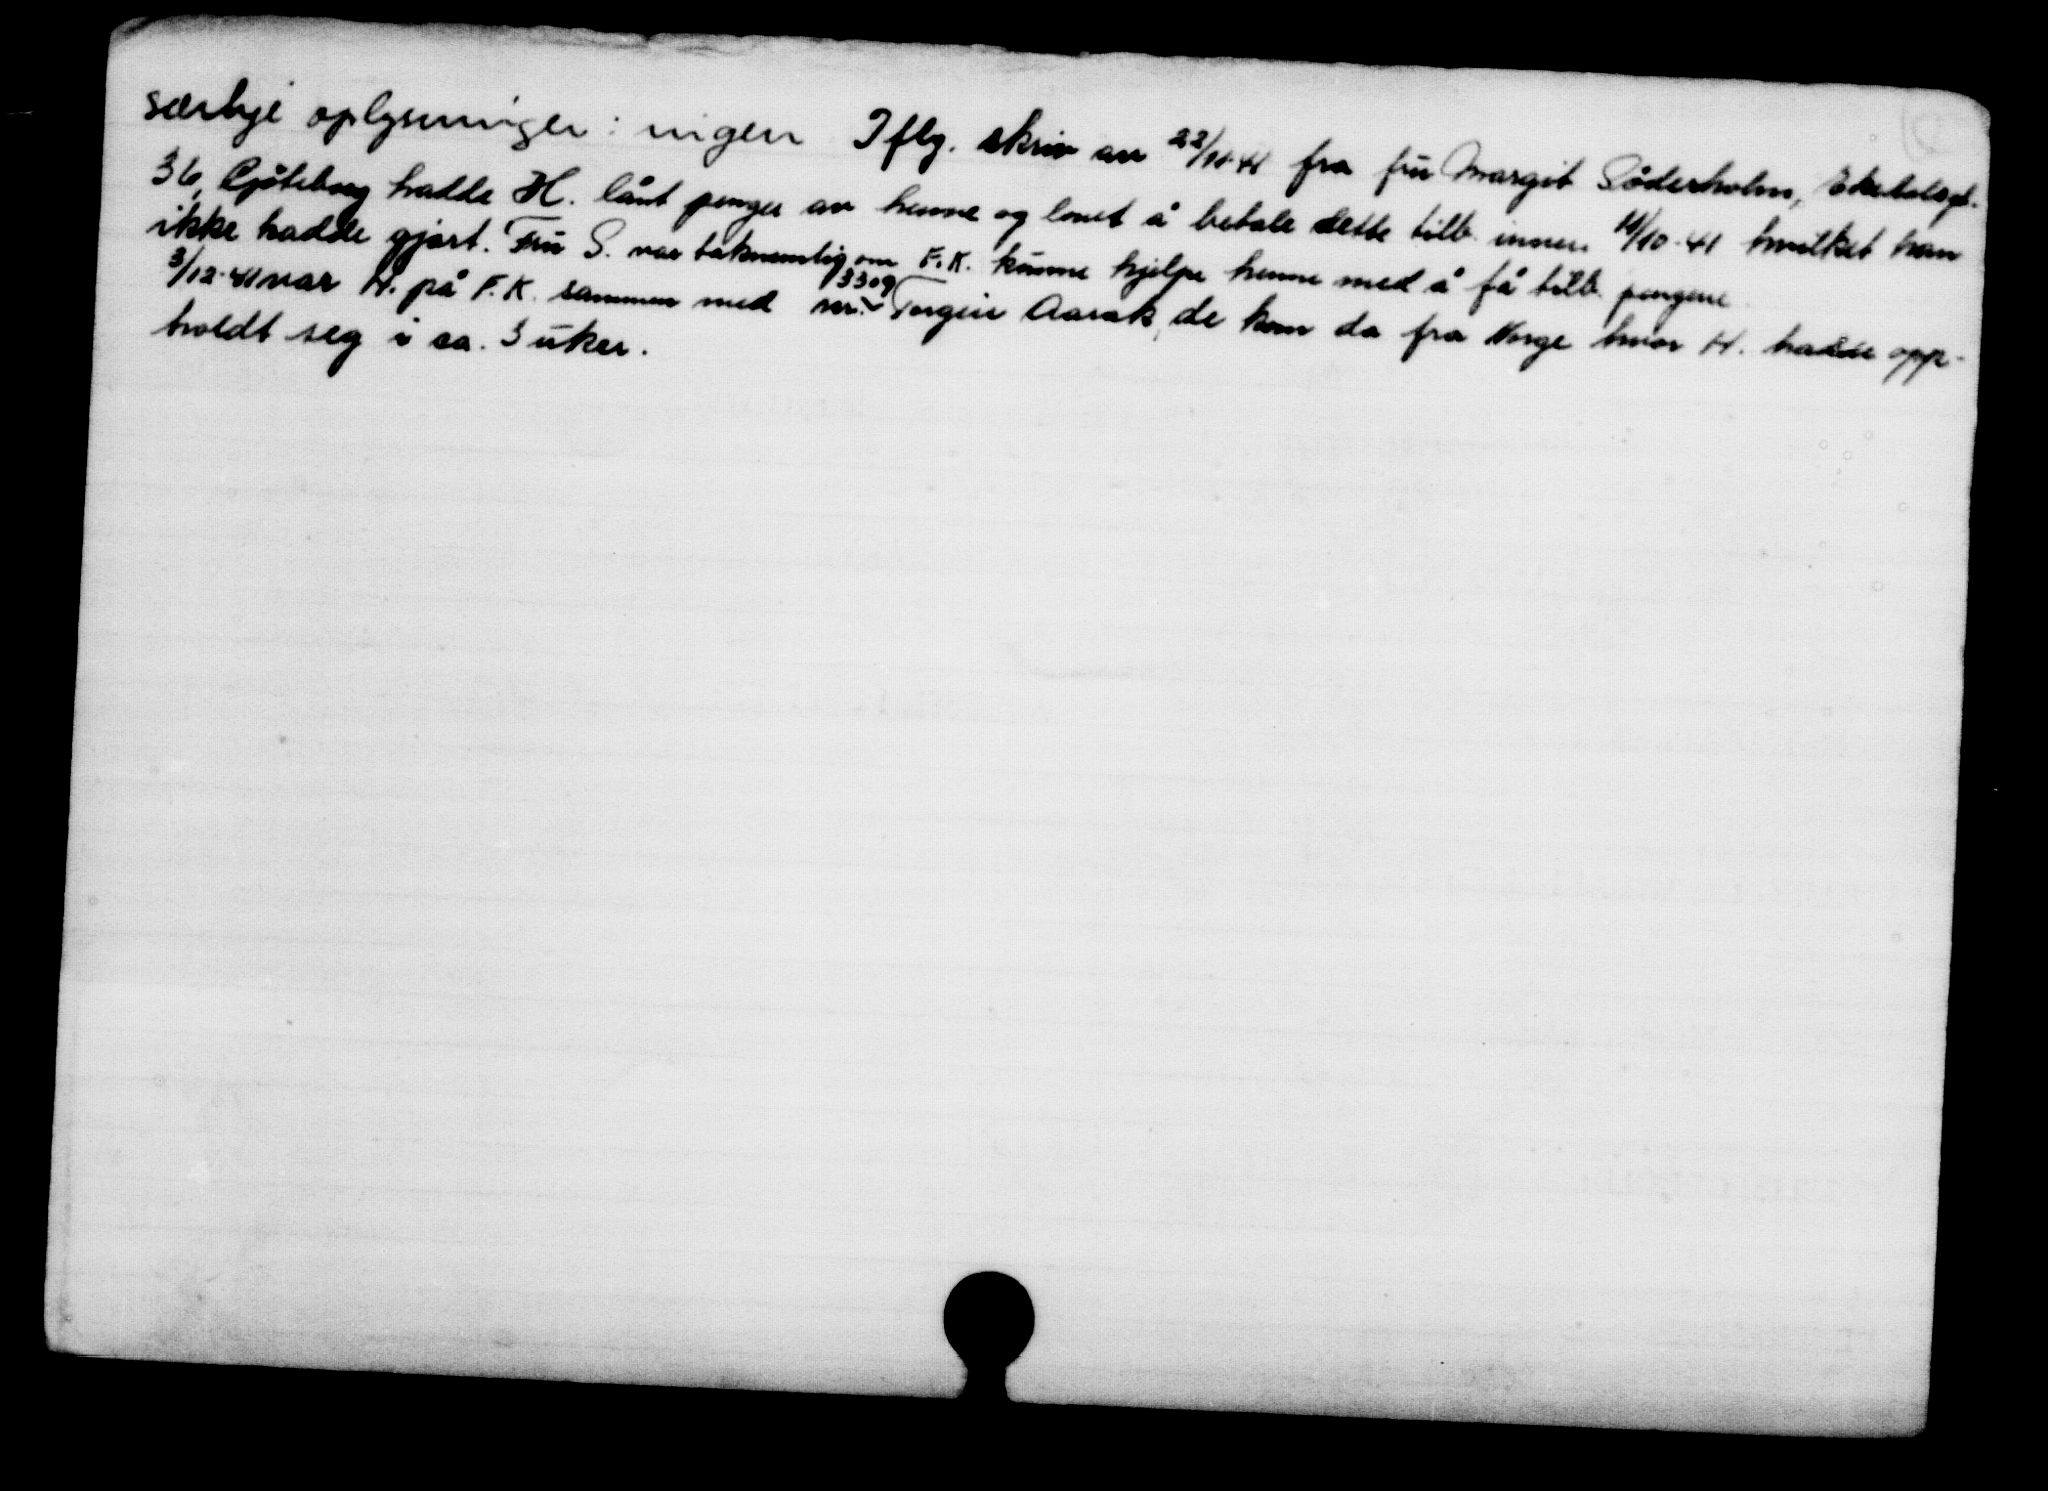 særlige oplysninger: ingen Iflg. skriv av 22/10-41 fra fru Margit Söderholm, Ekebolsgt.
36, Gøteborg hadde H. lånt penger av henne og lovet å betale dette tilb. innen 11/10-41 hvilket han
ikke hadde gjort. Fru S. var taknemlig om F.K. kunne hjelpe henne med å få tilb. pengene
3/12-41 var H. på F.K. sammen med nr. 3309 Torgeir Aarak, de kom da fra Norge hvor H. hadde opp-
holdt seg i ca. 3 uker.